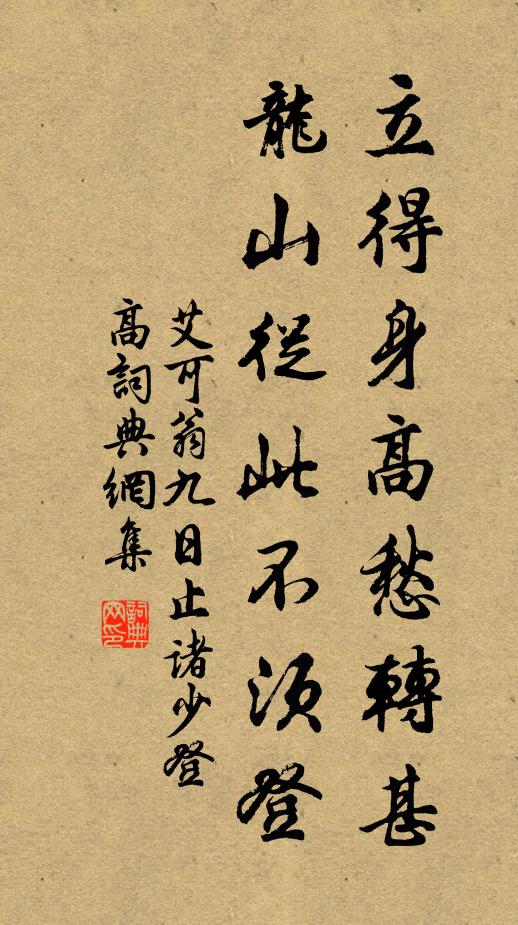 立得身高愁轉甚
龍山從此不須登
艾可翁九日止諸少登
高詞典網集
詞典
网印